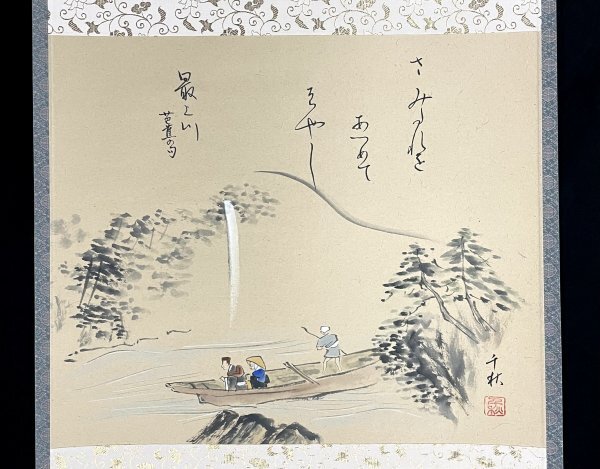 さみだれを
あつめて
はやし
最上川
芭蕉の句
千秋